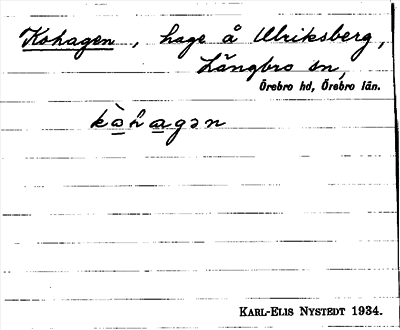 Kohagen, hage å Ulriksberg,
Längbro sn,
Örebro hd, Örebro län.
kòhagən
KARL-ELIS NYSTEDT 1934.